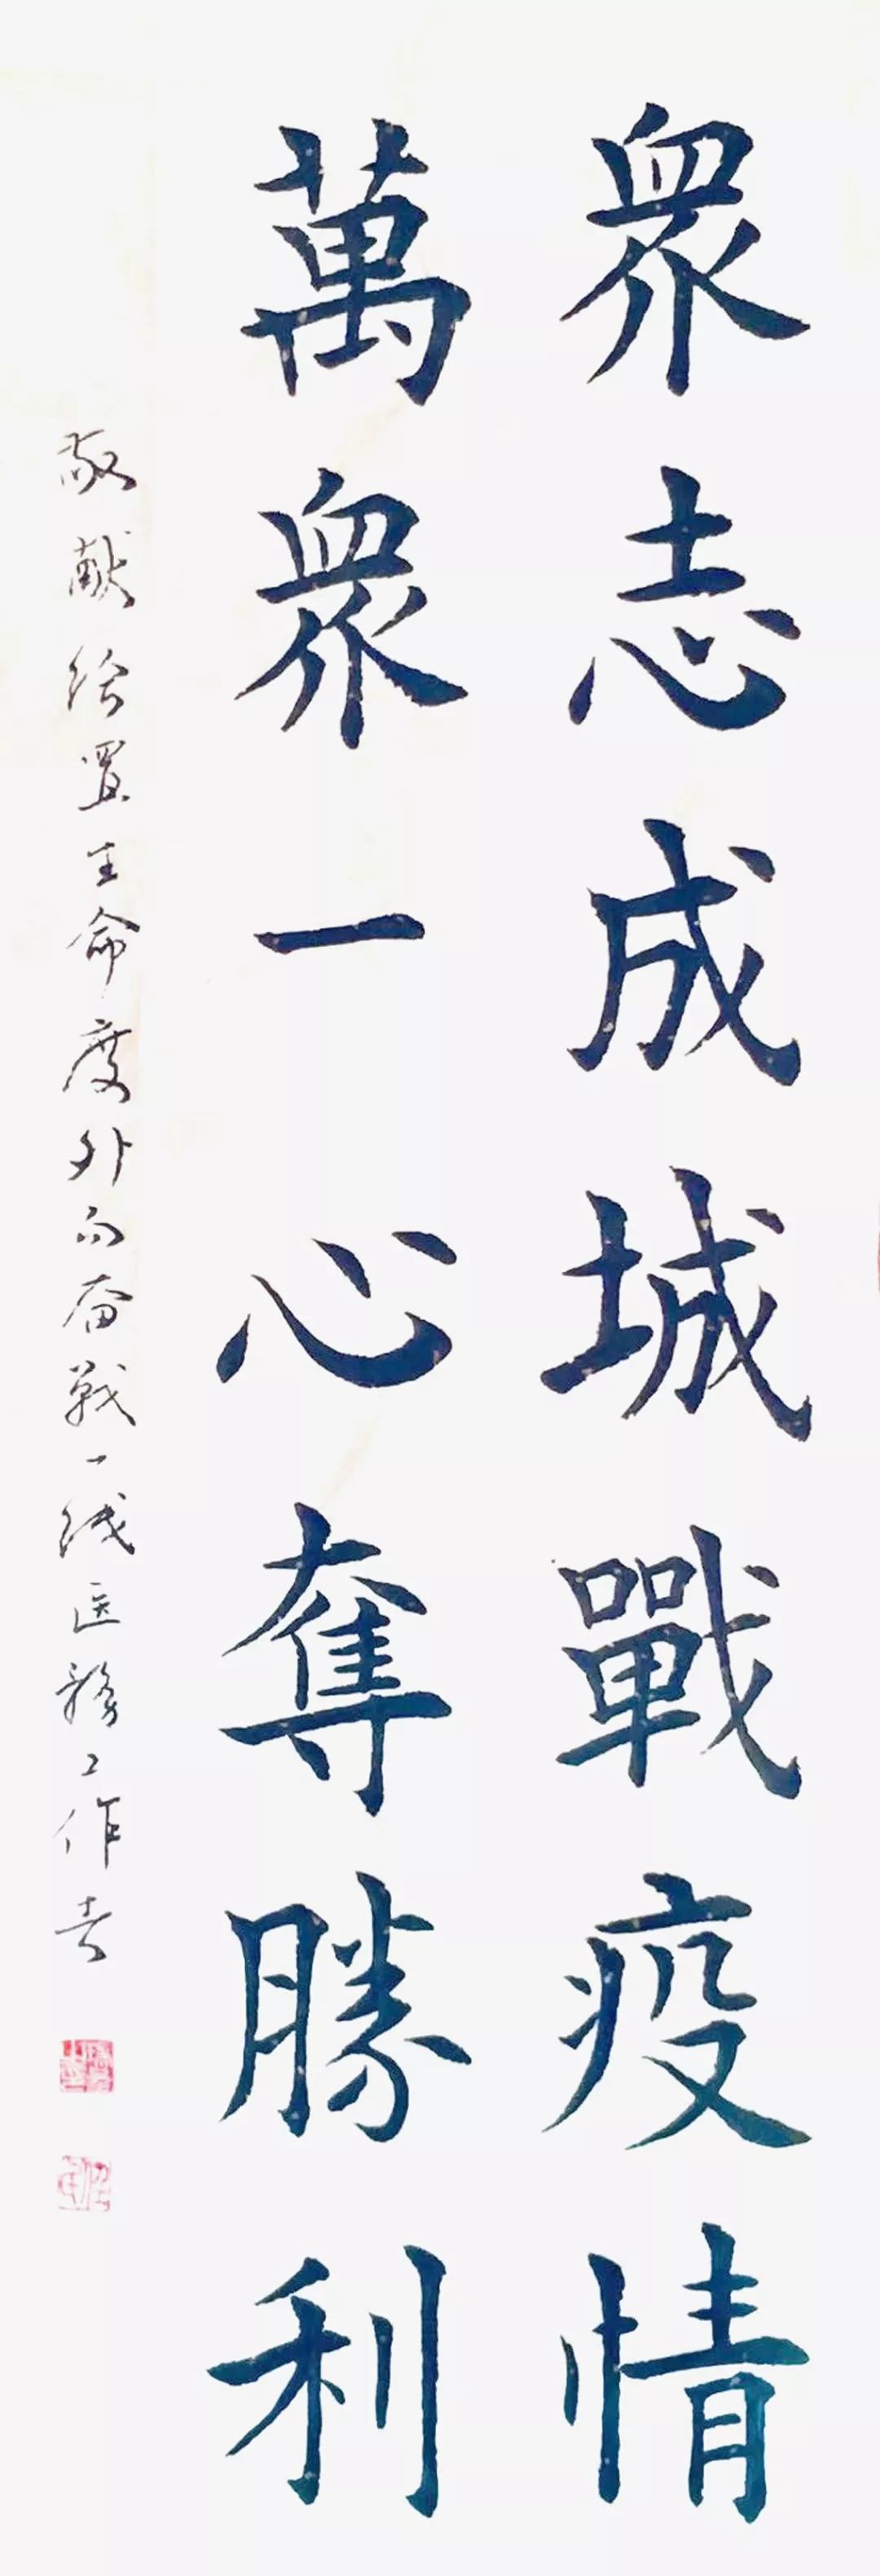 眾志成城戰疫情
萬眾一心奪勝利
敬献给置生命度外而奋战一线医務工作者